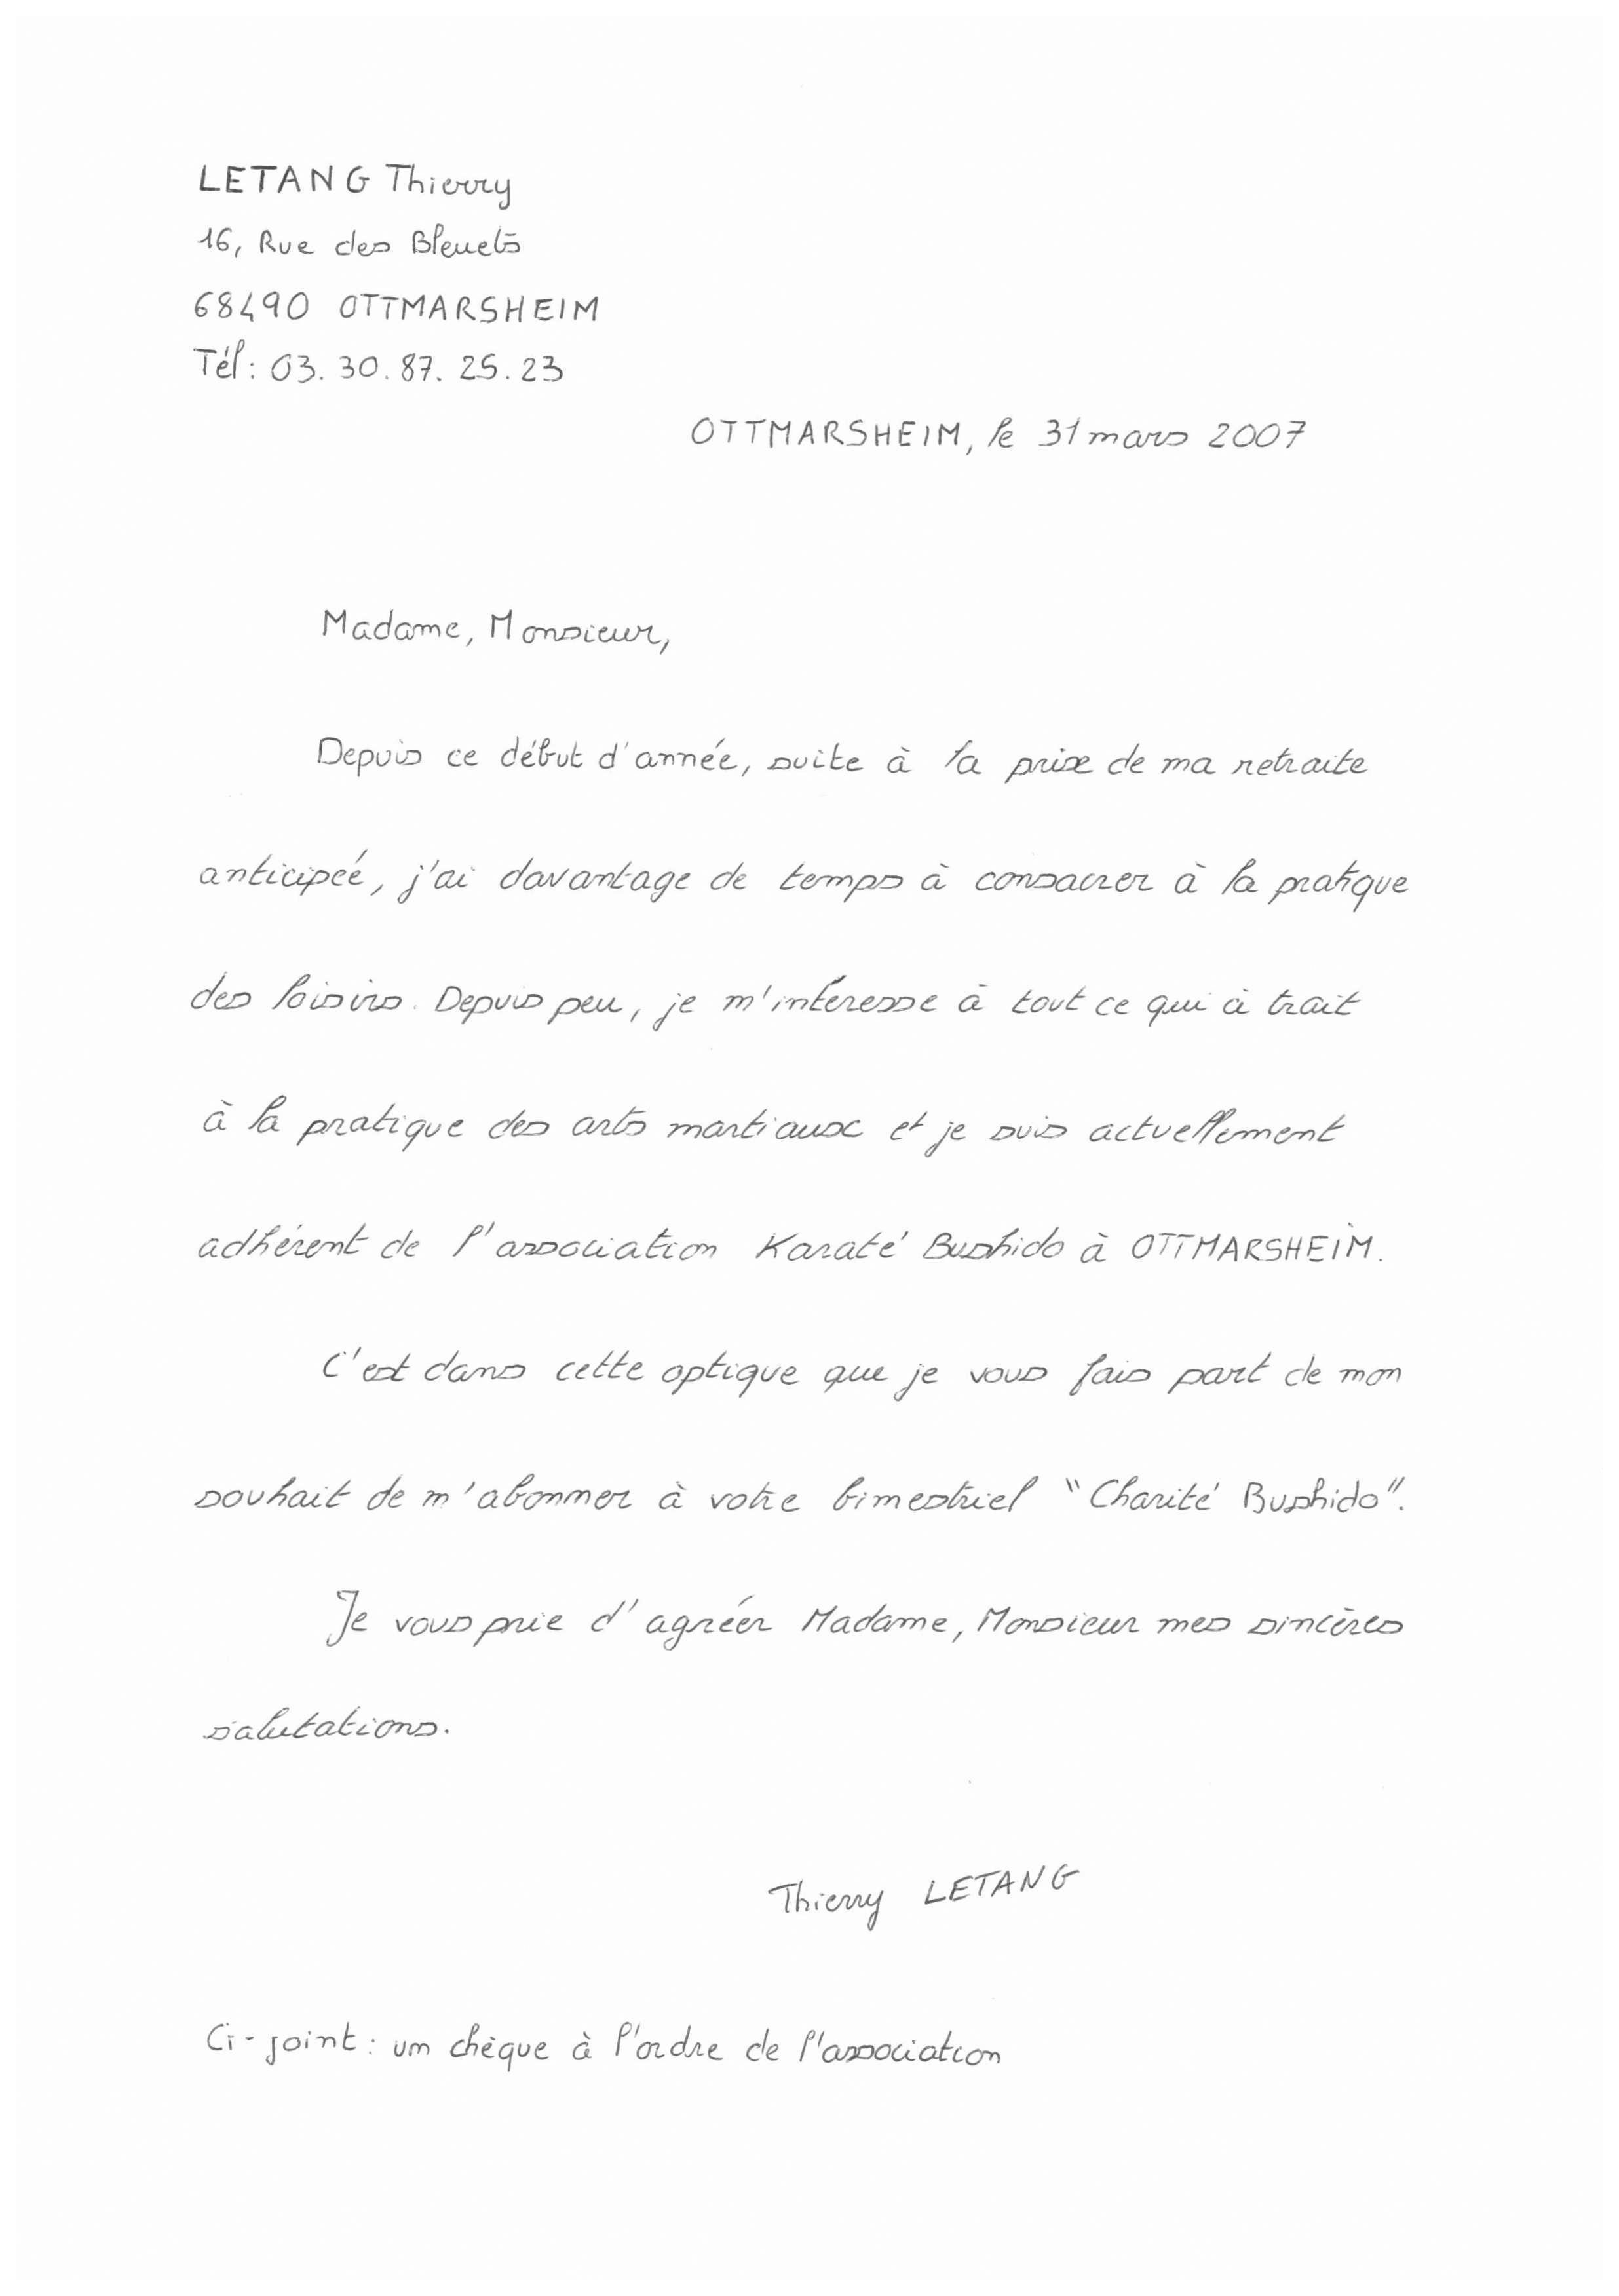 LETANG Thierry
16, Rue des Bleuets
68490 OTTMARSHEIM
Tél : 03. 30. 87. 25. 23
OTTMARSHEIM, le 31 mars 2007
Madame, Monsieur,
Depuis ce début d'année, suite à la prise de ma retraite
anticipée, j'ai davantage de temps à consacrer à la pratique
des loisirs. Depuis peu, je m'intéresse à tout ce qui à trait
à la pratique des arts martiaux et je suis actuellement
adhérent de l'association Karaté Bushido à OTTMARSHEIM.
C'est dans cette optique que je vous fais part de mon
souhait de m'abonner à votre bimestriel "Charité Bushido".
Je vous prie d'agréer Madame, Monsieur mes sincères
salutations.
Thierry LETANG
Ci-joint : un chèque à l'ordre de l'association